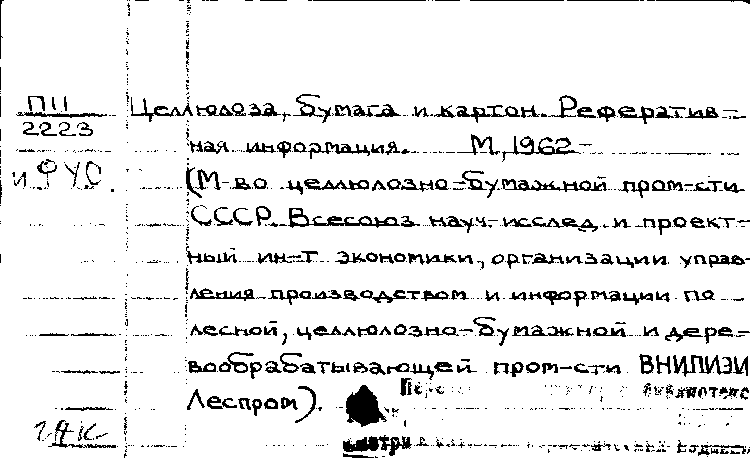 П11
2223
и ФУС.
Целлюлоза, бумага и картон. Рефератив-
ная информация. М, 1962-
(М-во целлюлозно-бумажной пром-сти
СССР. Всесоюз науч.-исслед. и проект-
ный ин-т экономики, организации управ-
ления производством и информации по
лесной, целлюлозно-бумажной и дере-
вообрабатывающей пром-сти ВНИПИЭИ
Леспром).
библиотеке
смотри в